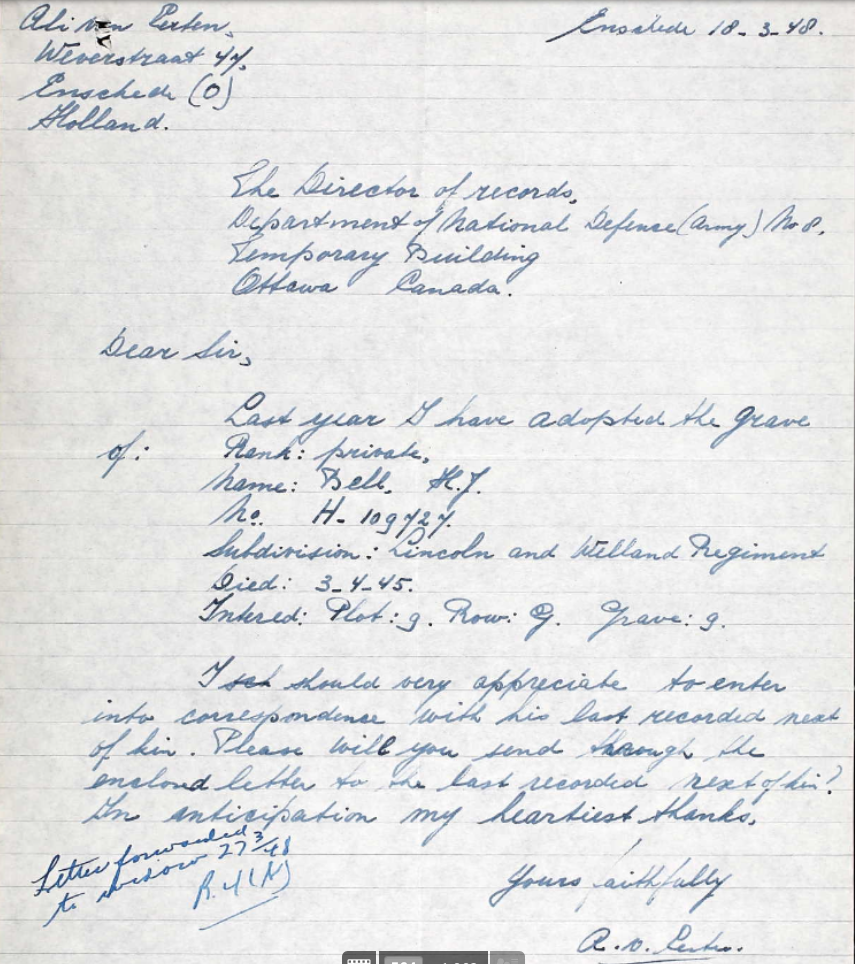 Ali van Eerten,
Enschede 18-3-48.
Weverstraat 47,
Enschede (O)
Holland.
The Director of records,
Department of National Defense (Army) No 8.
Temporary Building
Ottawa Canada.
Dear Sir,
Last year I have adopted the grave
of: Rank: private,
Name: Bell, H.J.
No. H- 109727.
Subdivision: Lincoln and Welland Regiment
Died: 3-4-45.
Intered: Plot: 9. Row: G. Grave: 9.
I should very appreciate to enter
into correspondence with his last recorded next
of kin. Please will you send through the
enclosed letter to the last recorded next of kin?
In anticipation my heartiest thanks,
Letter forwarded
to widow 27/3/48
Yours faithfully